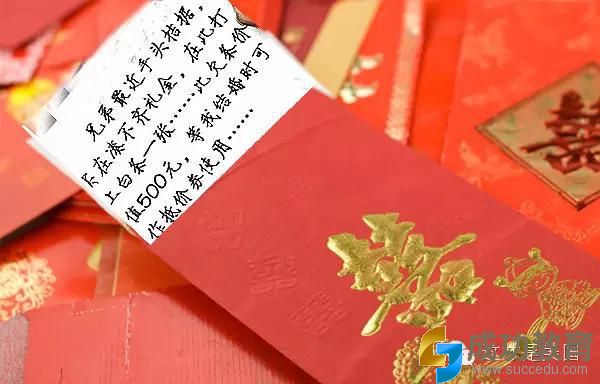 兄弟最近手头拮据，
实在凑不齐礼金，在此打
上白条一张……此欠条价
值500元，等我结婚时可
作抵价券使用……
囍
囍
成功教育
www.succedu.com